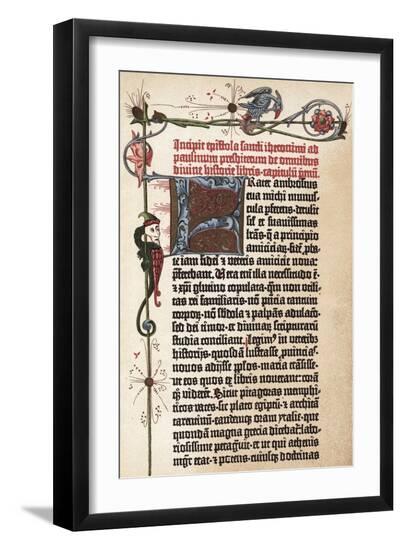 Incipit epistola sancti iheronimi ad
paulinum presbiterum de omnibus
divine historie libris. capitulū pmū.
Frater ambrosius
tua michi munus-
cula pferens. detulit
sīl' et suavissimas
lrās. q̄ a principio
amiciciaȝ. fidē pba-
te iam fidei et veteris amicicie nova:
pferebant. Vera enī illa necessitudo ē.
et xpī glutino copulata. quam non utili-
tas rei familiaris. nō pñcia tantum
corpoȝ. nō sbdola et palpās adulacō.
sed dei timor. et divinaȝ scripturarū
studia conciliant. Legim⁹ in veterib⁹
historijs. quosdam lustrasse ꝓvincias.
novos adijsse pplos. maria trāsisse.
ut eos quos ex libris noverant: coram
qȝ viderēt. Sicut pitagoras memphi-
ticos vates. sic plato egiptū et architā
tarentinū. eandemqȝ oram ytalie. que
quondam magna grecia dicebat᷑. labo-
riosissime peragravit: et ut qui athenis
mgr̄ erat. et potens. cuiusqȝ doctrinas